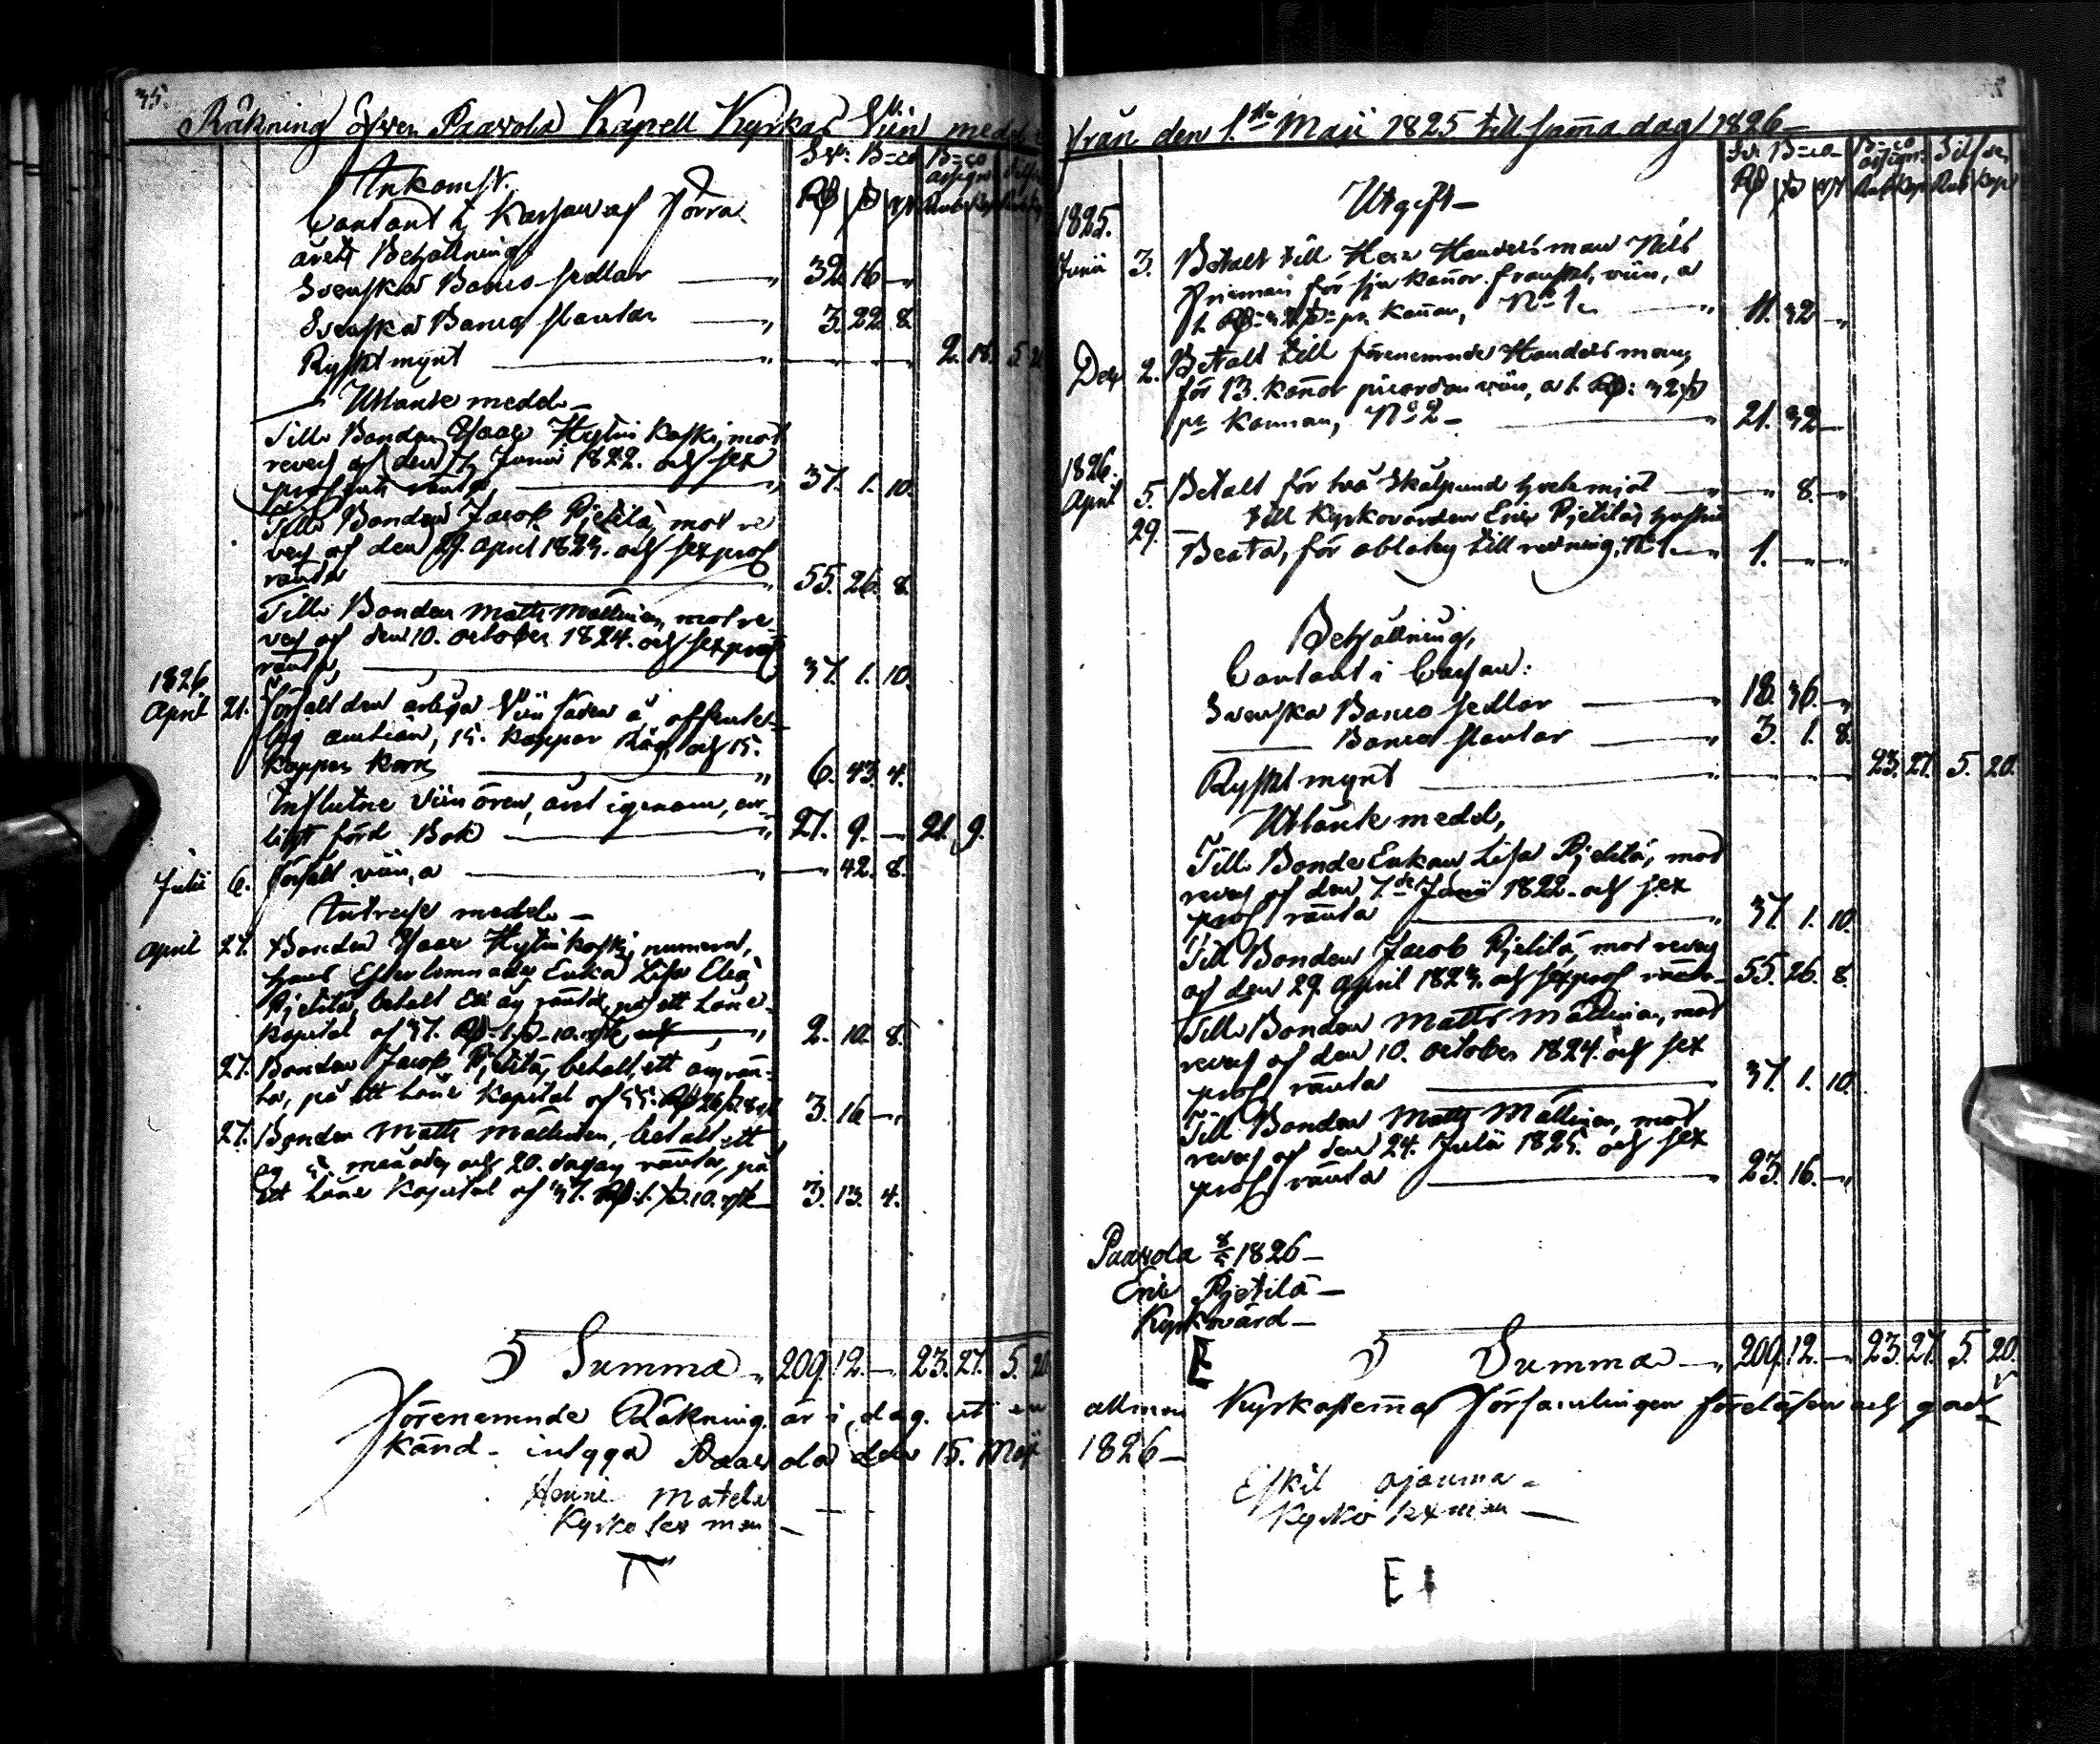 35.
Räkning öfver Paavola Kapell Kyrkas Viin medel
Inkomst.
Sv: B=co B=co assign
Rd ß rst Rub Kop
Contant i Kassan af förra
årets Behållning
Svenska Banco sedlar — " 32 16 — "
Svenska Banco slantar — " 3. 22. 8.
Ryskt mynt — " — 2. 18. 5. 20
Utlante medel —
Till Bonden Isaac Hytinkoski, mot
revers af den 7 Junii 1822. och sex
procents ränta — " 37. 1. 10.
Till Bonden Jacob Pjetilä, mot re
vers af den 29. April 1823. och sex proc
ränta — " 55. 26. 8.
Till Bonden Matts Mattinen, mot re-
vers af den 10. october 1824. och sex proc
ränta — 37. 1. 10.
1826.
April 21. Försålt den årliga Viin saden å offente-
lig auction, 15. kappar Råg, och 15.
Kappar Korn — " 6. 43. 4.
Influtne viin ören, året igenom, en-
ligt förd Bok — " 27. 9. — 21. 9.
Julii 6. Försålt viin, a — " — 42. 8.
Intresse medel —
April 27. Bonden Isaac Hytinkoski, numera,
hans Efterlemnade Enka Lisa
Pjetilä, betalt ett årg ränta, på ett låne-
Kapital af 37. Rd. 1. ß. 10. rst — " 2. 10. 8.
27. Bonden Jacob Pjetilä, betalt, ett årg rän-
ta, på ett låne Kapital af 55. Rd 26 ß. 8 rst 3. 16 — "
27. Bonden Matts Mattinen, betalt, ett
årg 5. månader och 20. dagars ränta, på
ett Låne Kapital af 37. Rd. 1. ß. 10. rst — 3. 13. 4.
Summa — " 209. 12. — " 23. 27. 5. 20
Förenemnde Räkning är i dag uti en
känd - intyga Paavola den 15. Maji
Henric Matela
Kyrko sexman —
från den 1.sta Maji 1825 till samma dag 1826 —
Utgift —
Sv: B=co B=co assign: Silfver
Rd ß rst Rub Kop Rub Kop
1825.
Junii 3. Betalt till Herr Handelsman Nils
Frieman för sju kannor franskt viin, a
1. Rd = 32 ß = pr kannan, No 1. — " 11. 32 — "
Decr 2. Betalt till förenemnde Handelsman,
för 13. kannor picardon viin, a 1. Rd: 32 ß
pr Kannan, No 2 — " 21. 32 —
1826.
April 5. Betalt för två Skålpund hvetemjöl — " — 8. — "
29. — till Kyrkovärden Eric Pjetiläs hustru
Beata, för oblaters till redning, — " 1. — " — "
Behållning,
Contant i Cassan:
Svenska Banco sedlar — " 18. 36. — "
— Banco slantar — " 3. 1. 8.
Ryskt mynt — " — 23. 27. 5. 20.
Utlante medel,
Till Bonde Enkan Lisa Pjetilä, mot
revers af den 7de Junii 1822. och sex
proc ränta — " 37. 1. 10.
Till Bonden Jacob Pjetilä, mot revers
af den 29. April 1823. och sex proc ränta — 55. 26. 8.
Till Bonden Matts Mattinen, mot
revers af den 10. october 1824. och sex
proc ränta — 37. 1. 10.
Till Bonden Matts Mattinen, mot
revers af den 24. Julii 1825. och sex
proc ränta — " 23. 16. — "
Paavola 8/5 1826 —
Eric Pjetilä —
Kyrkovärd —
E
Summa — " 209. 12. — " 23. 27. 5. 20.
allmen Kyrkostemma Församlingen föreläsen och god
1826 —
Eskil Ojanma —
Kyrko sexman —
E